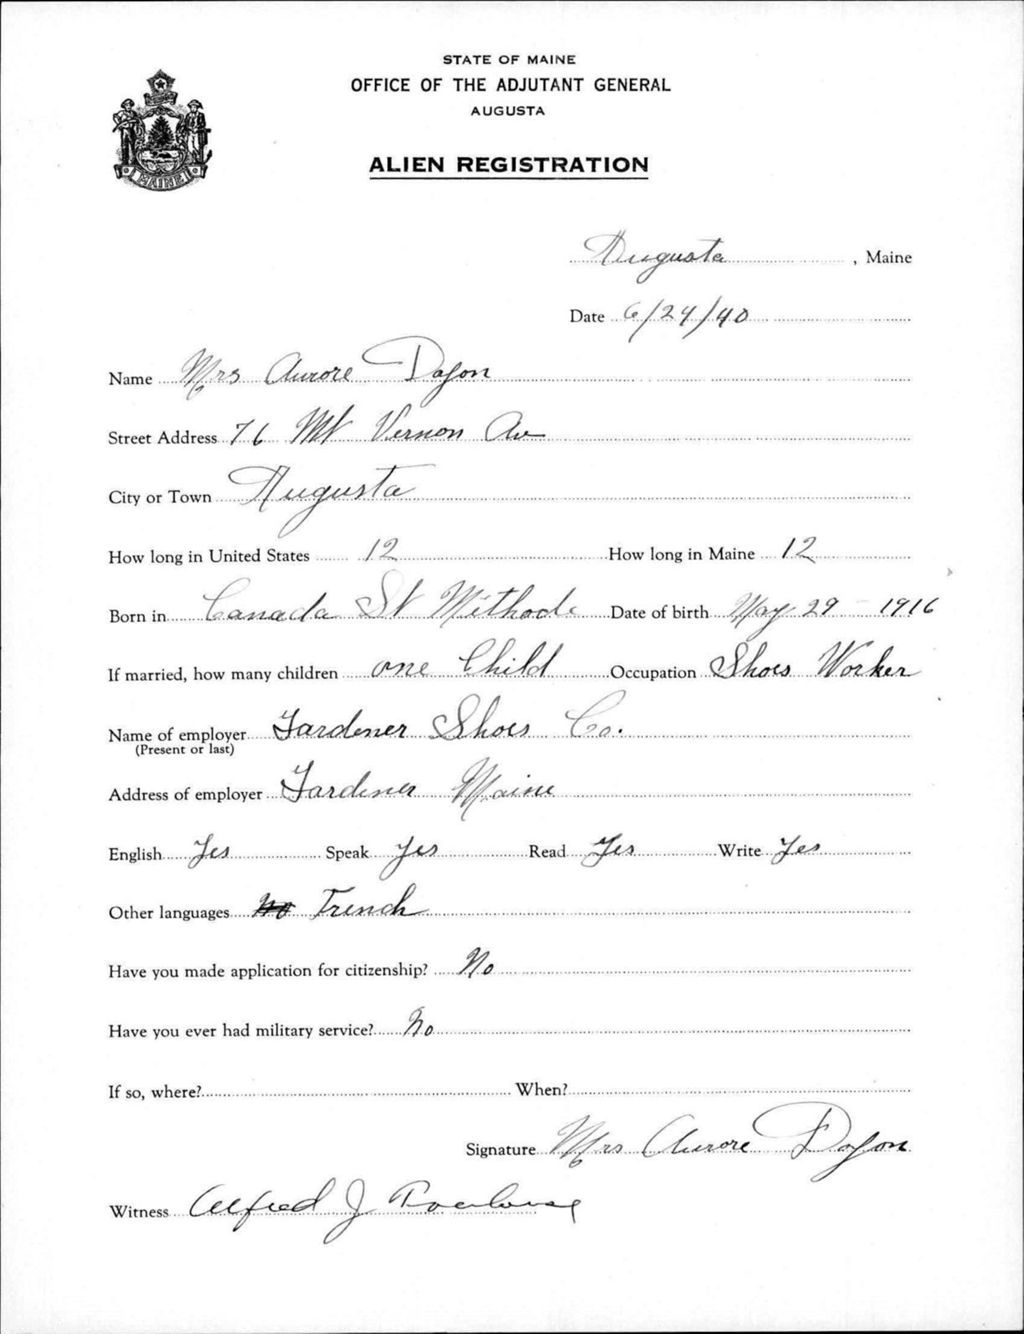 STATE OF MAINE
OFFICE OF THE ADJUTANT GENERAL
AUGUSTA
MAINE
ALIEN REGISTRATION
Augusta, Maine
Date 6/24/40
Name Mrs Aurore Doyon
Street Address 76 Mt Vernon Av
City or Town Augusta
How long in United States 12 How long in Maine 12
Born in Canada St Mithode Date of birth May 29 - 1916
If married, how many children one Child Occupation Shoes Worker
Name of employer Gardener Shoes Co.
(Present or last)
Address of employer Gardener Maine
English Yes Speak Yes Read Yes Write Yes
Other languages No French
Have you made application for citizenship? No
Have you ever had military service? No
If so, where? When?
Signature Mrs Aurore Doyon
Witness Alfred J